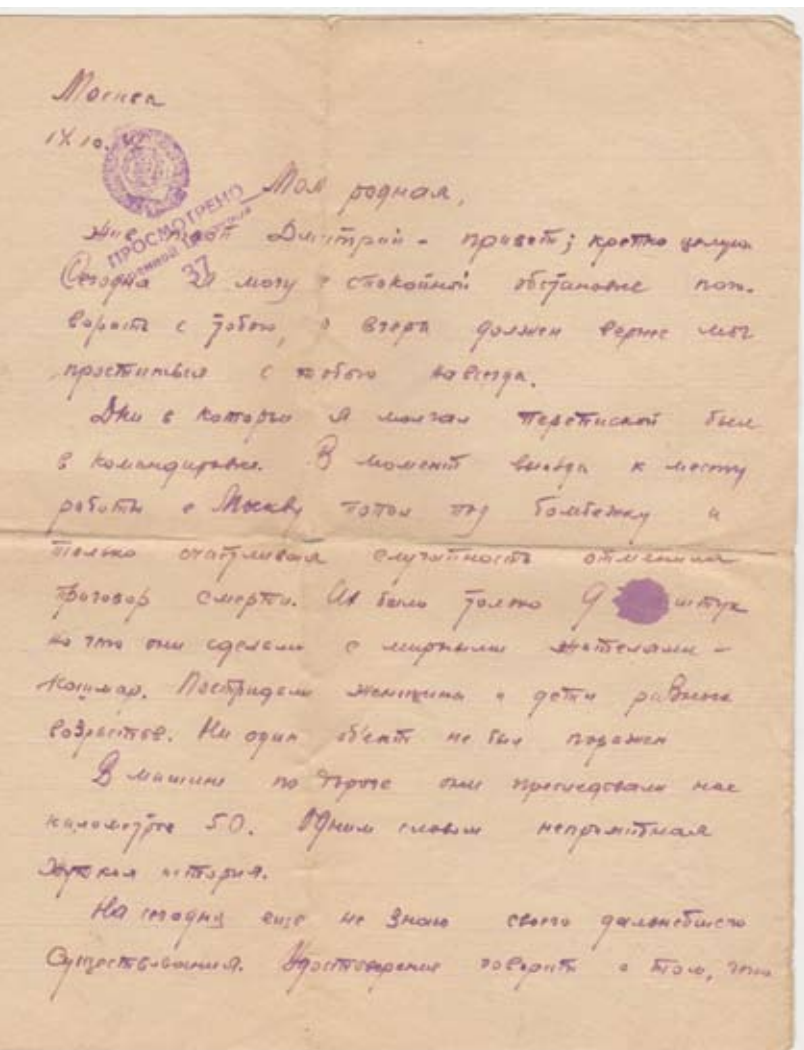 Москва
IX 10. 42
Моя родная,
ПРОСМОТРЕНО
Военной Цензурой
37
Жив твой Дмитрий - привет; крепко целую
Сегодня я могу в спокойной обстановке пого-
ворить с тобою, а вчера должен вернее мог
проститься с тобою навсегда.
Дни в которые я молчал перепиской был
в командировке. В момент выезда к месту
работы в Москву попал под бомбежку и
только счастливая случайность отменила
приговор смерти. Их было только 9 штук
но что они сделали с мирными жителями -
кошмар. Пострадали женщины и дети разных
возрастов. Ни один объект не был поражен
В машине по дороге они преследовали нас
километров 50. Одним словом неприятная
жуткая история.
На сегодня еще не знаю своего дальнейшего
Существования. Удостоверение говорит о том, что